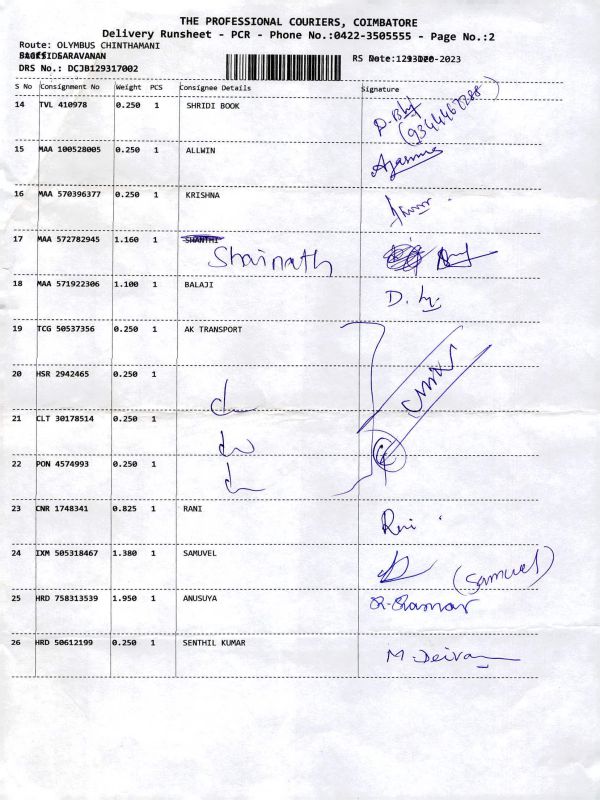 THE PROFESSIONAL COURIERS, COIMBATORE
Delivery Runsheet - PCR - Phone No.:0422-3505555 - Page No.:2
Route: OLYMBUS CHINTHAMANI
SARAVANAN
DRS No.: DCJB129317002
S No Consignment No Weight PCS Consignee Details Signature
14 TVL 410978 0.250 1 SHRIDI BOOK
15 MAA 100528005 0.250 1 ALLWIN
16 MAA 570396377 0.250 1 KRISHNA
17 MAA 572782945 1.160 1 SHANTHI
Shainath
18 MAA 571922306 1.100 1 BALAJI
19 TCG 50537356 0.250 1 AK TRANSPORT
20 HSR 2942465 0.250 1
21 CLT 30178514 0.250 1
22 PON 4574993 0.250 1
23 CNR 1748341 0.825 1 RANI
24 IXM 505318467 1.380 1 SAMUVEL
(Samuel)
25 HRD 758313539 1.950 1 ANUSUYA
26 HRD 50612199 0.250 1 SENTHIL KUMAR